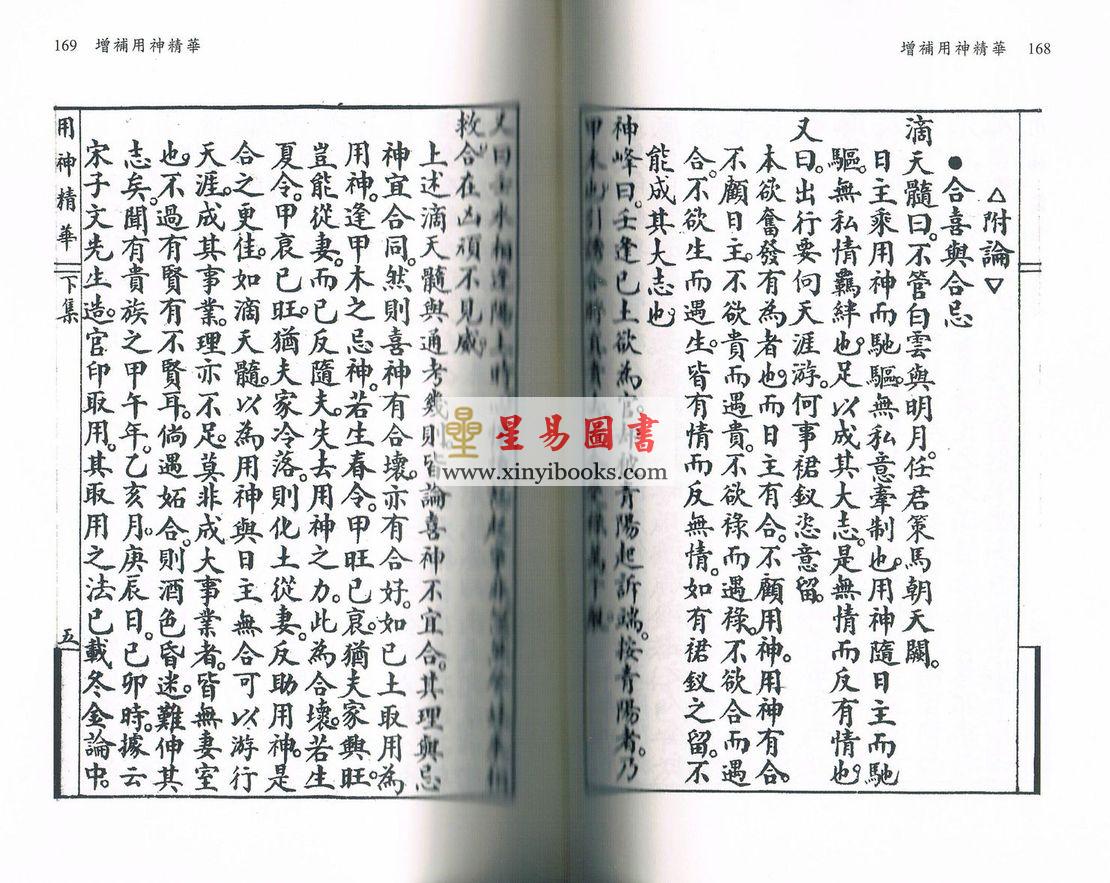 增補用神精華 168
△附論▽
●合喜與合忌
滴天髓曰。不管白雲與明月。任君策馬朝天闕。
日主乘用神而馳驅。無私意牽制也。用神隨日主而馳
驅。無私情羈絆也。足以成其大志。是無情而反有情也。
又曰。出行要向天涯游。何事裙釵恣意留。
本欲奮發有為者也。而日主有合。不顧用神。用神有合。
不顧日主。不欲貴而遇貴。不欲祿而遇祿。不欲合而遇
合。不欲生而遇生。皆有情而反無情。如有裙釵之留。不
能成其大志也。
神峰曰。壬逢己土欲為官。青陽起訴端。按青陽者。乃
甲木也。引
169 增補用神精華
又曰
救合在凶頑不見威。
上述滴天髓與通考幾則皆論喜神不宜合。其理與忌
神宜合同。然則喜神有合壞。亦有合好。如己土取用為
用神。逢甲木之忌神。若生春令。甲旺己衰。猶夫家興旺。
豈能從妻。而己反隨夫。夫去用神之力。此為合壞。若生
夏令。甲衰己旺。猶夫家冷落。則化土從妻。反助用神。是
合之更佳。如滴天髓。以為用神與日主無合可以游行
天涯。成其事業。理亦不足。莫非成大事業者。皆無妻室
也。不過有賢有不賢耳。倘遇妬合。則酒色昏迷。難伸其
志矣。聞有貴族之甲午年。乙亥月。庚辰日。己卯時。據云
宋子文先生造。官印取用。其取用之法已載冬金論中。
用神精華
下集
五
星易圖書
www.xinyibooks.com